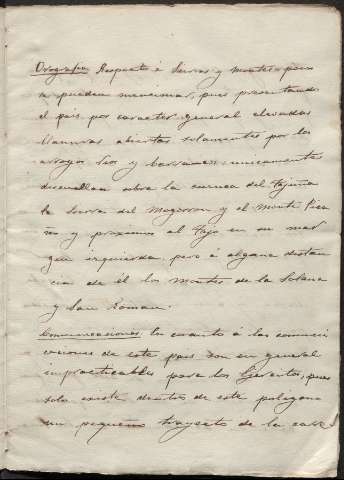 Orografia Respecto á Sierras y montes poco
se pueden mencionar, pues presentando
el pais por caracter general elevadas
llanuras abiertas solamente por los
arroyos, rios y barrancos, unicamente
descuellan sobre la cuenca del Tajuña
la Sierra del Magorron y el Monte
y proximos al Tajo en su mar
gen izquierda pero á alguna distan
cia de él los Montes de la Solana
y San Roman.
Comunicaciones En cuanto á las comuni
caciones de este pais son en general
impracticables para los Ejercitos, pues
solo existe dentro de este poligono
un pequeño trayecto de la carre